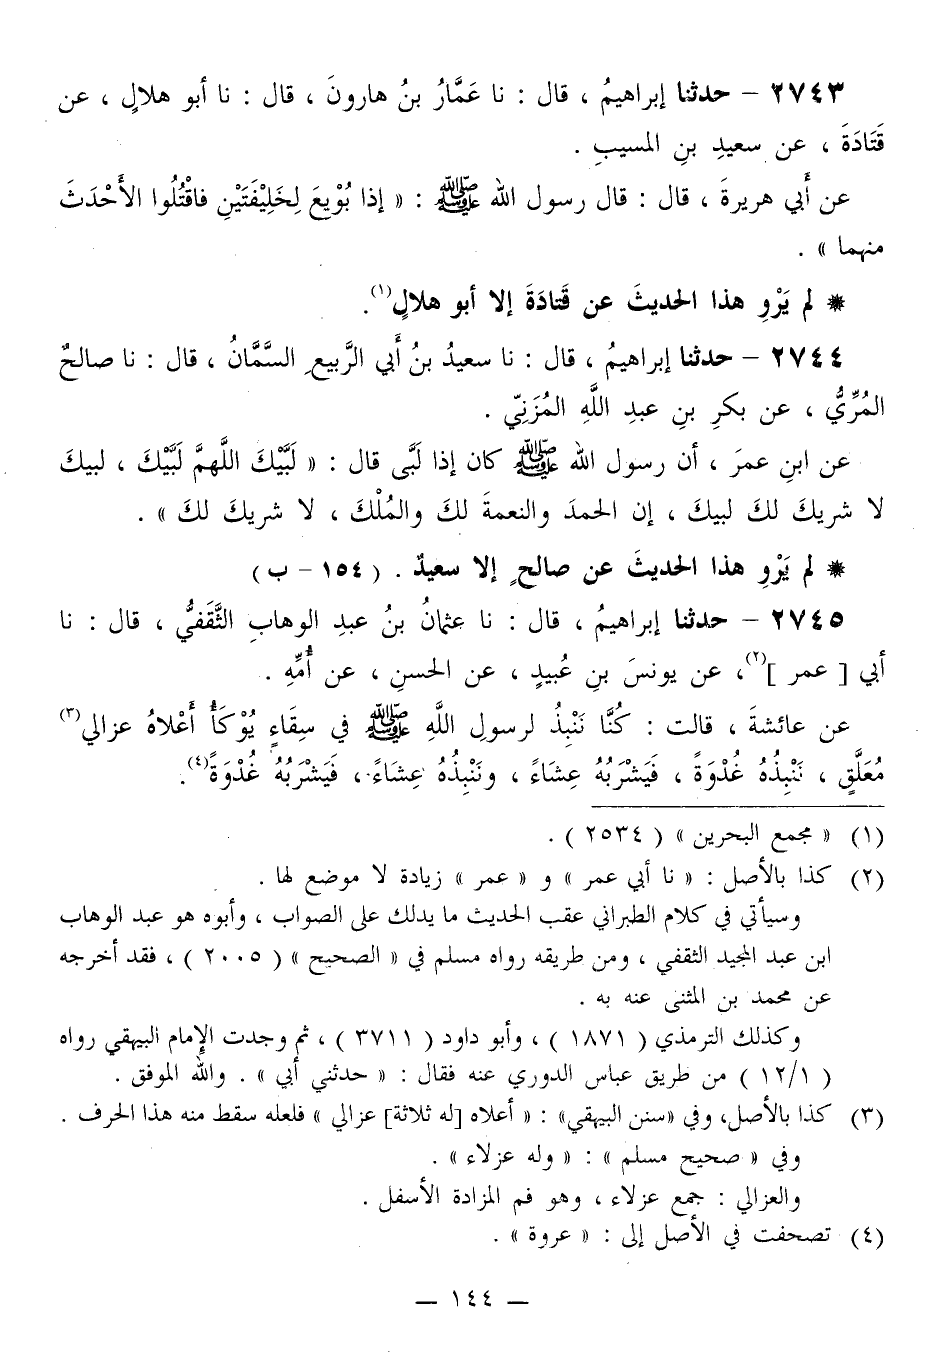 ٢٧٤٣ - حدثنا إبراهيمُ ، قال : نا عَمَّارُ بنُ هارونَ ، قال : نا أبو هلالٍ ، عن
قَتَادَةَ ، عن سعيدِ بنِ المسيبِ .
عن أَبي هريرةَ ، قال : قال رسول الله ﷺ : « إذا بُوْيِعَ لِخَلِيْفَتَيْنِ فاقْتُلُوا الأَحْدَثَ
منهما » .
* لم يَرْوِ هذا الحديثَ عن قَتَادَةَ إلا أبو هلالٍ(١).
٢٧٤٤ - حدثنا إبراهيمُ ، قال : نا سعيدُ بنُ أَبي الرَّبيعِ السَّمَّانُ ، قال : نا صالحٌ
المُرِّيُّ ، عن بكرِ بنِ عبدِ اللَّهِ المُزَنِيّ .
عن ابنِ عمرَ ، أن رسول الله ﷺ كان إذا لَبَّى قال : « لَبَّيْكَ اللَّهمَّ لَبَّيْكَ ، لبيكَ
لا شريكَ لكَ لبيكَ ، إن الحمدَ والنعمةَ لكَ والمُلْكَ ، لا شريكَ لكَ » .
* لم يَرْوِ هذا الحديثَ عن صالحٍ إلا سعيدٌ . ( ١٥٤ - ب )
٢٧٤٥ - حدثنا إبراهيمُ ، قال : نا عثمانُ بنُ عبدِ الوهابِ الثَّقَفيُّ ، قال : نا
أبي [ عمر ](٢)، عن يونسَ بنِ عُبيدٍ ، عن الحسنِ ، عن أُمِّهِ .
عن عائشةَ ، قالت : كُنَّا نَنْبِذُ لرسولِ اللَّهِ ﷺ في سِقَاءٍ يُوْكَأُ أَعْلاهُ عزالي(٣)
مُعَلَّقٍ ، نَنْبِذُهُ غُدْوَةً ، فَيَشْرَبُهُ عِشَاءً ، ونَنْبِذُهُ عِشَاءً ، فَيَشْرَبُهُ غُدْوَةً(٤).
(١) « مجمع البحرين » ( ٢٥٣٤ ) .
(٢) كذا بالأصل : « نا أبي عمر » و « عمر » زيادة لا موضع لها .
وسيأتي في كلام الطبراني عقب الحديث ما يدلك على الصواب ، وأبوه هو عبد الوهاب
ابن عبد المجيد الثقفي ، ومن طريقه رواه مسلم في « الصحيح » ( ٢٠٠٥ ) ، فقد أخرجه
عن محمد بن المثنى عنه به .
وكذلك الترمذي ( ١٨٧١ ) ، وأبو داود ( ٣٧١١ ) ، ثم وجدت الإمام البيهقي رواه
( ١٢/١ ) من طريق عباس الدوري عنه فقال : « حدثني أبي » . والله الموفق .
(٣) كذا بالأصل، وفي «سنن البيهقي» : « أعلاه [له ثلاثة] عزالي » فلعله سقط منه هذا الحرف .
وفي « صحيح مسلم » : « وله عزلاء » .
والعزالي : جمع عزلاء ، وهو فم المزادة الأسفل .
(٤) تصحفت في الأصل إلى : « عروة » .
— ١٤٤ —